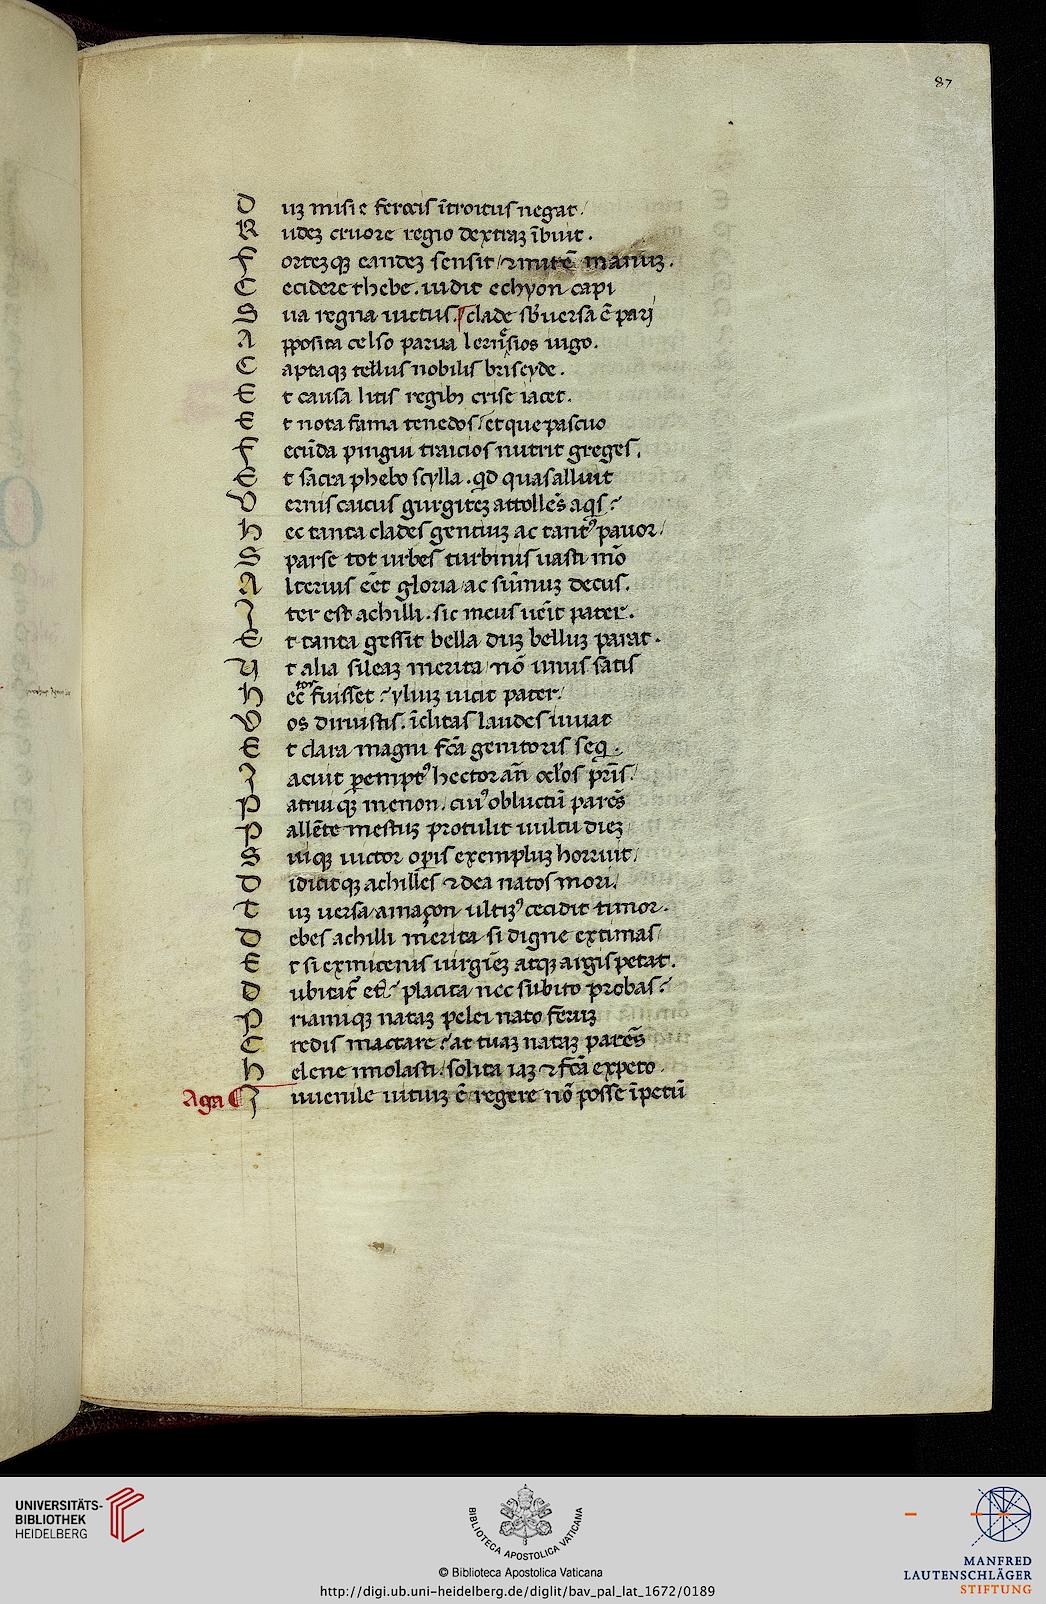 87
D uꝫ misie ferocis ĩtroitus negat
R udeꝫ cruore regio dextraꝫ ĩbuit.
F orteꝫqꝫ eandeꝫ sensit ⁊ mitẽ manuꝫ.
C ecidere thebe. uidit echyon capi
S ua regna uictus. clade sb̃uersa ẽ pari
A pposita celso parua lernesios iugo.
C aptaqꝫ tellus nobilis briseyde.
E t causa litis regibꝫ crise iacet.
E t nota fama tenedos et que pascuo
F ecũda pingui traicios nutrit greges.
E t sacra phebo scylla. qd quas alluit
V ernis caicus gurgiteꝫ attollẽs aqs
h ec tanta clades gentiuꝫ ac tantꝰ pauor
S parse tot urbes turbinis uasti mõ
A lterius eẽt gloria ac sũmuꝫ decus.
I ter est achilli. sic meus uẽit pater.
E t tanta gessit bella duꝫ belluꝫ parat.
V t alia sileaꝫ merita nõ unus satis
h ec̃tor fuisset yliuꝫ uicit pater.
V os diruistis. ĩclitas laudes iuuat
E t clara magni fc̃a genitoris seq.
I acuit pemptꝰ hector añ oclos pr̃is.
P atruiqꝫ menon. cuiꝰ obluctũ parẽs
P allẽte mestuꝫ protulit uultu dieꝫ
S uiqꝫ uictor opis exempluꝫ horruit.
D idicitqꝫ achilles ⁊ dea natos mori.
T uꝫ uersa amaçon ultiꝫꝰ cecidit timor.
D ebes achilli merita si digne extimas
E t si ex micenis uirgiẽꝫ atqꝫ argis petat.
D ubitat᷑ et placita nec subito probas
P riamiqꝫ nataꝫ pelei nato feruꝫ
C redis mactare at tuaꝫ nataꝫ parẽs
h elene imolasti solita iaꝫ ⁊ fc̃a expeto
Aga I uuenile uitiuꝫ ẽ regere nõ posse ĩpetũ
UNIVERSITÄTS-
BIBLIOTHEK
HEIDELBERG
BIBLIOTECA APOSTOLICA VATICANA
© Biblioteca Apostolica Vaticana
http://digi.ub.uni-heidelberg.de/diglit/bav_pal_lat_1672/0189
MANFRED
LAUTENSCHLÄGER
STIFTUNG